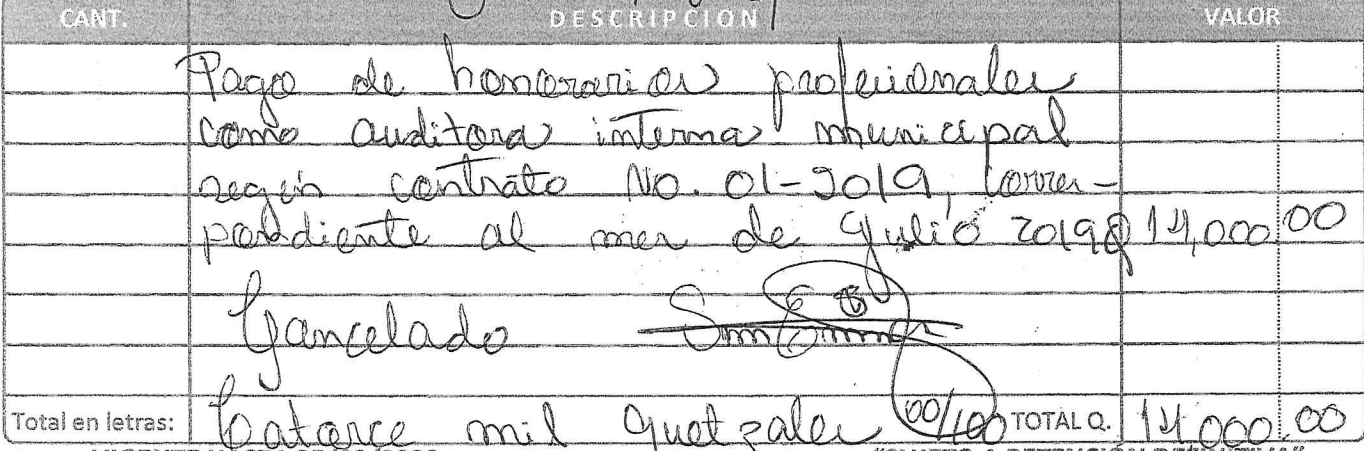 CANT. DESCRIPCION VALOR
Pago de honorarios profesionales
como auditora interna municipal
según contrato No. 01-2019, corres-
pondiente al mes de Julio 2019 Q 14,000.00
Cancelado
Total en letras: Catorce mil quetzales 00/100 TOTAL Q. 14,000.00